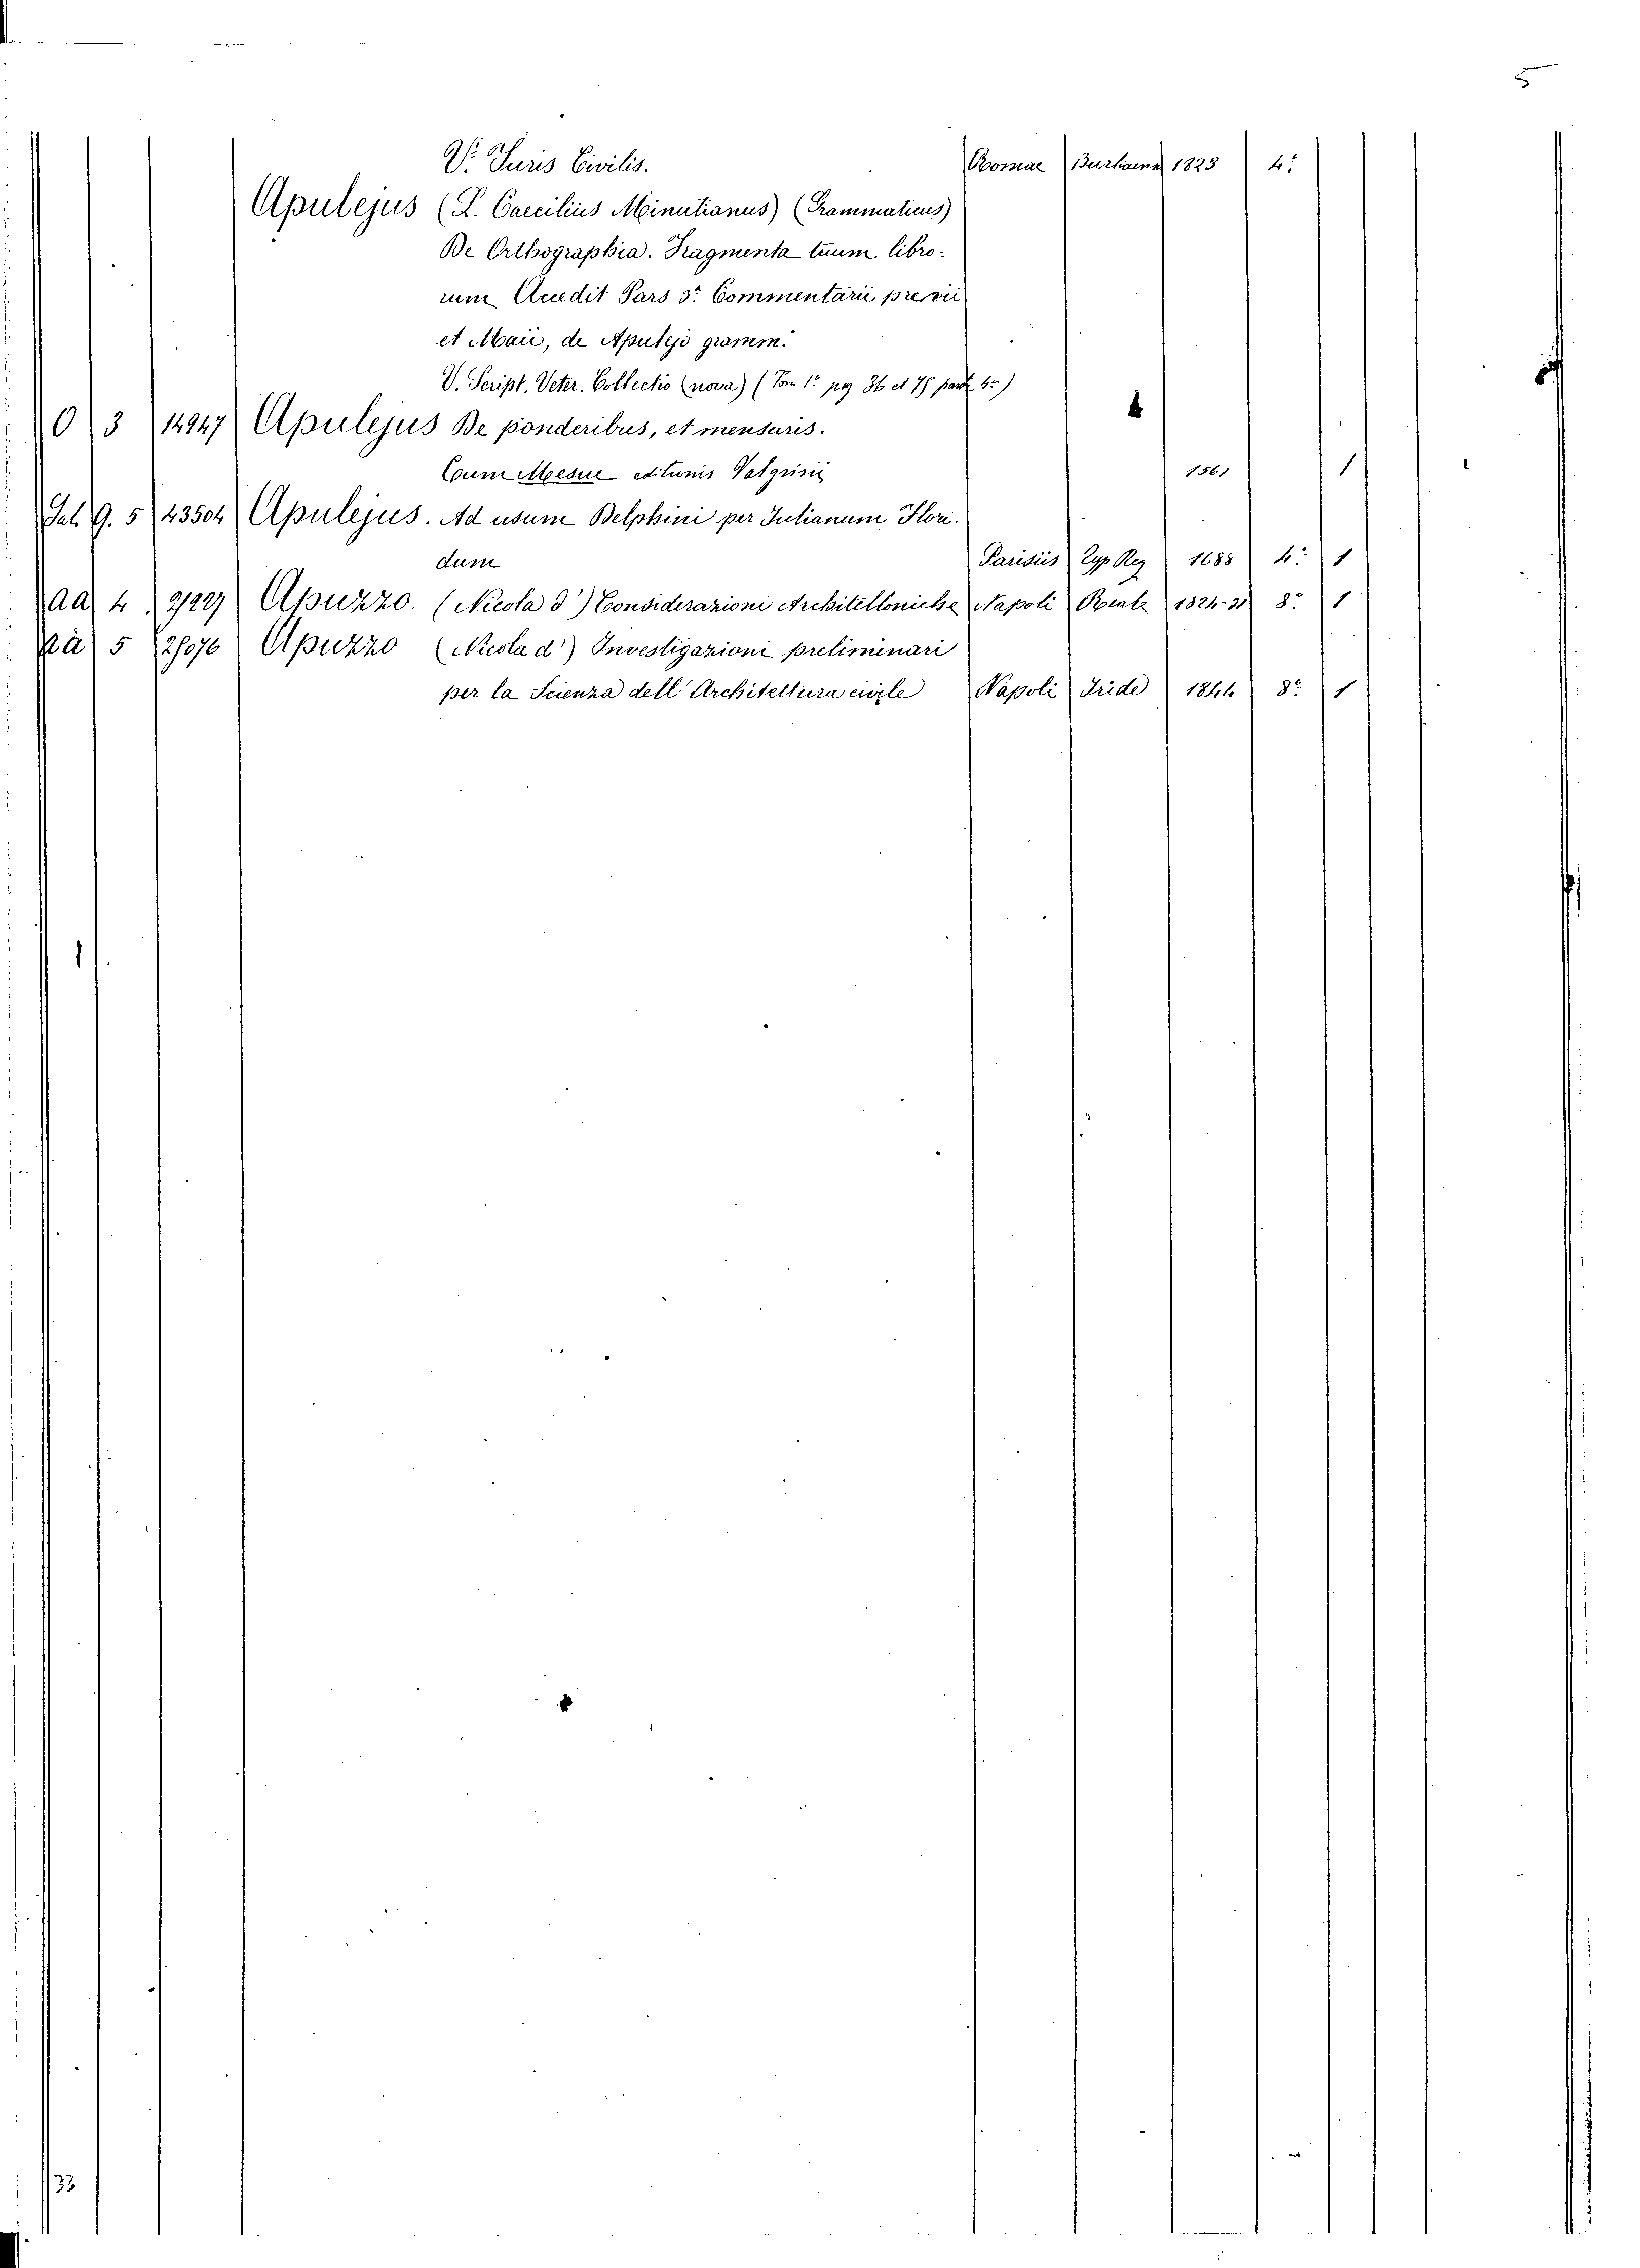 5
V. Juris Civilis. Romae 1823 4.º
Apulejus (L. Caecilius Minutianus) (Grammaticus)
De Orthographia. Fragmenta trium libro-
rum Accedit Pars 3.ª Commentarii previi
et Maii, de Apulejo gramm.
V. Script. Veter. Collectio (nova) (Tom 1.º pag 36 et 75 part 4.ª)
O 3 14947 Apulejus De ponderibus, et mensuris.
Cum Mesue editionis Valgrisii 1561 1
Sal. G. 5 43504 Apulejus. Ad usum Delphini per Julianum Flori-
dum Parisiis Typ Reg 1688 4.º 1
Aa 4 Apuzzo. (Nicola d') Considerazioni Architettoniche Napoli Reale 1824-31 8.º 1
5 Apuzzo (Nicola d') Investigazioni preliminari
per la Scienza dell' Architettura civile Napoli Iride 1844 8.º 1
33